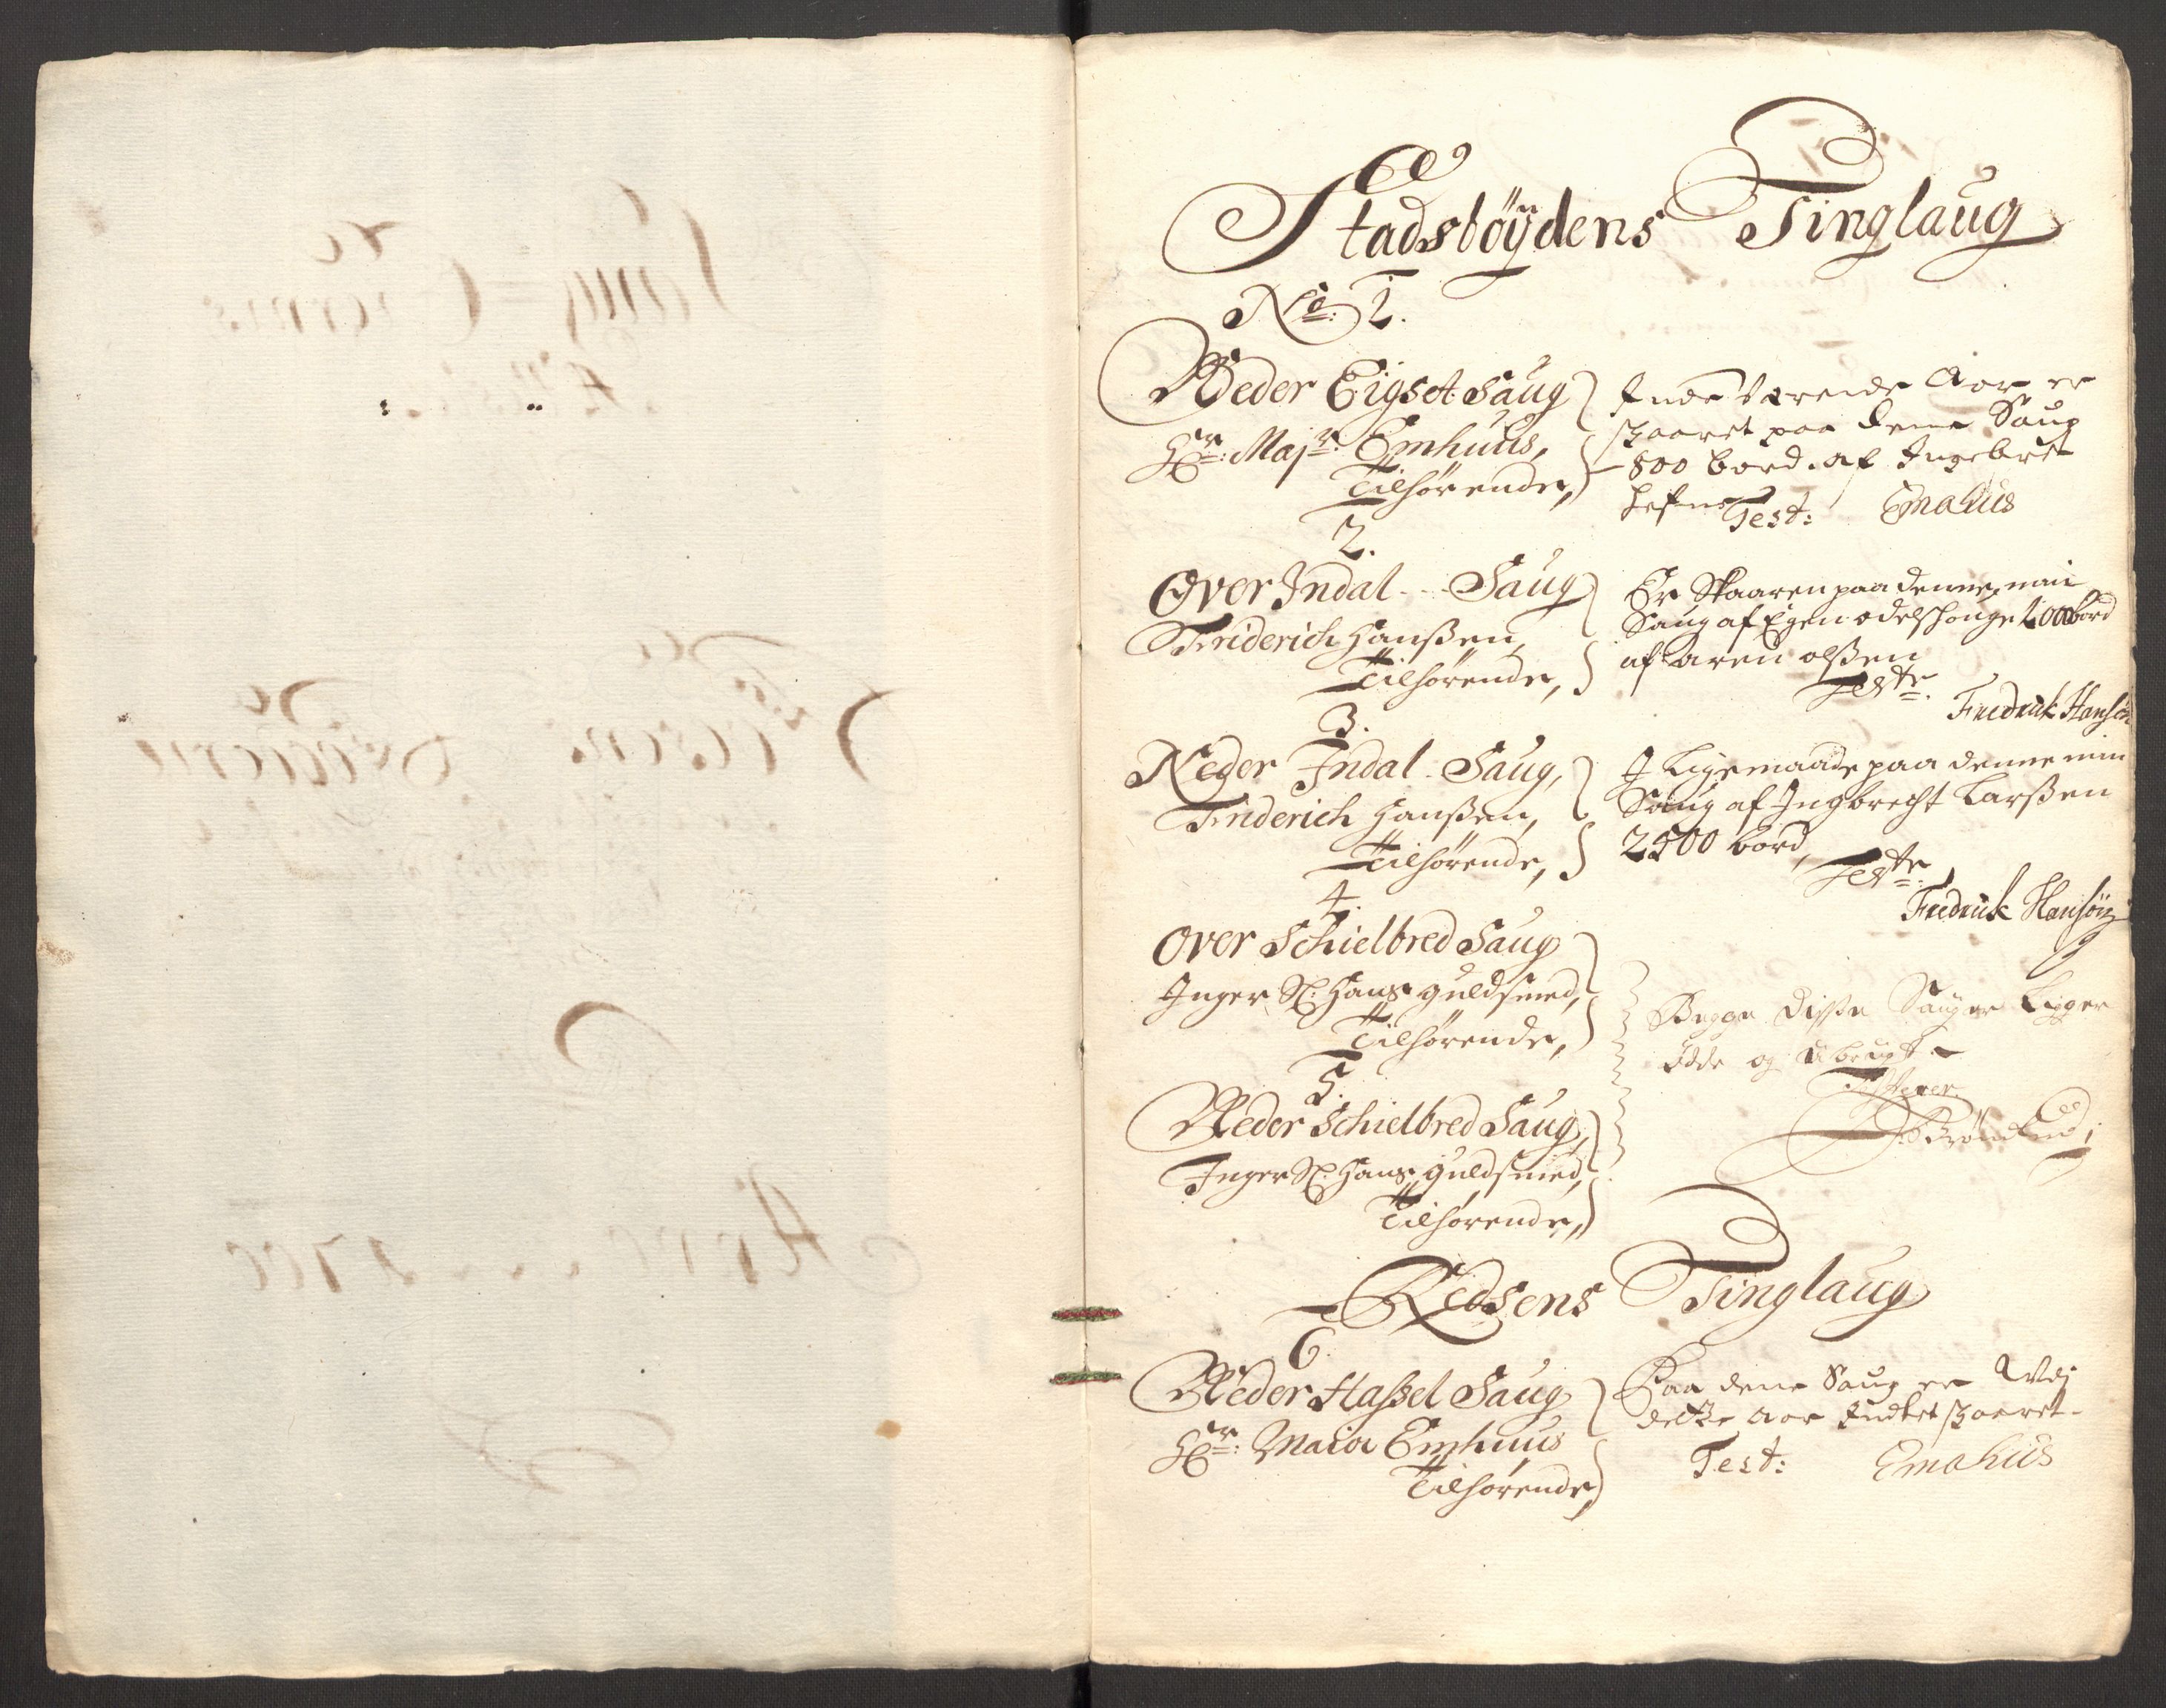 Stadsböÿdens Tinglaug
No: 1.
Neder Eigset Saug
Hr: Majr: Emhuus,
Tilhørende,
Inde Værende Aar er
skaaret paa denne Saug
800 bord. af Ingebret
Test: Emahus
2.
Over Indal - - - Saug
Friderich Hanßen,
Tilhørende,
Er Skaaren paa denne min
Saug af Egen odelshouge 200 bord
af aren olßen
Teste.
Fredruk Hansön
3.
Neder Indal - Saug,
Friderich Hanßen,
Tilhørende,
I Ligemaade paa denne min
Saug af Ingbrecht Larßen
2500 bord,
Teste:
Fredruk Hansön
4.
Over Schielbred Saug
Inger Sl: Hans guldsmed,
Tilhørende,
5.
Neder Schielbred Saug,
Inger Sl: Hans guldsmed,
Tilhørende,
Begge disse Sauger Ligger
Øde og ubrugt
Testerer
Redsens Tinglaug
6.
Neder Haßel Saug
Hr: Maior Emhuus
Tilhørende,
Paa dene Saug er
dette Aar Indtet skaaret.
Test: Emahus